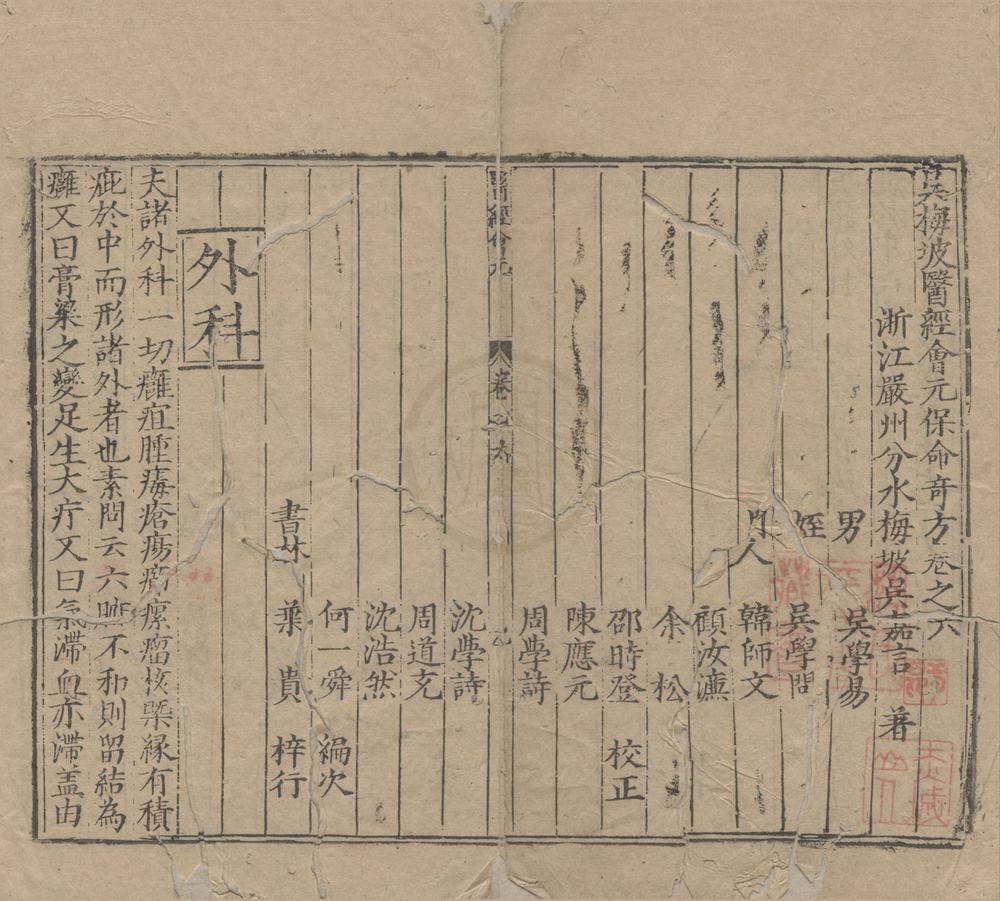 吳梅坡醫經會元保命奇方卷之六
浙江嚴州分水梅坡吳嘉言 著
男 吳學易
姪 吳學問
門人 韓師文
顧汝濂
余松
邵時登 校正
陳應元
周學詩
醫經會元 卷之六
沈學詩
周道克
沈浩然
何一舜 編次
書林 葉貴 梓行
外科
夫諸外科一切癰疽腫毒瘡瘍癤瘰瘤核槩緣有積
疵於中而形諸外者也素問云六腑不和則留結為
癰又曰膏粱之變足生大疔又曰氣滯血亦滯盖由